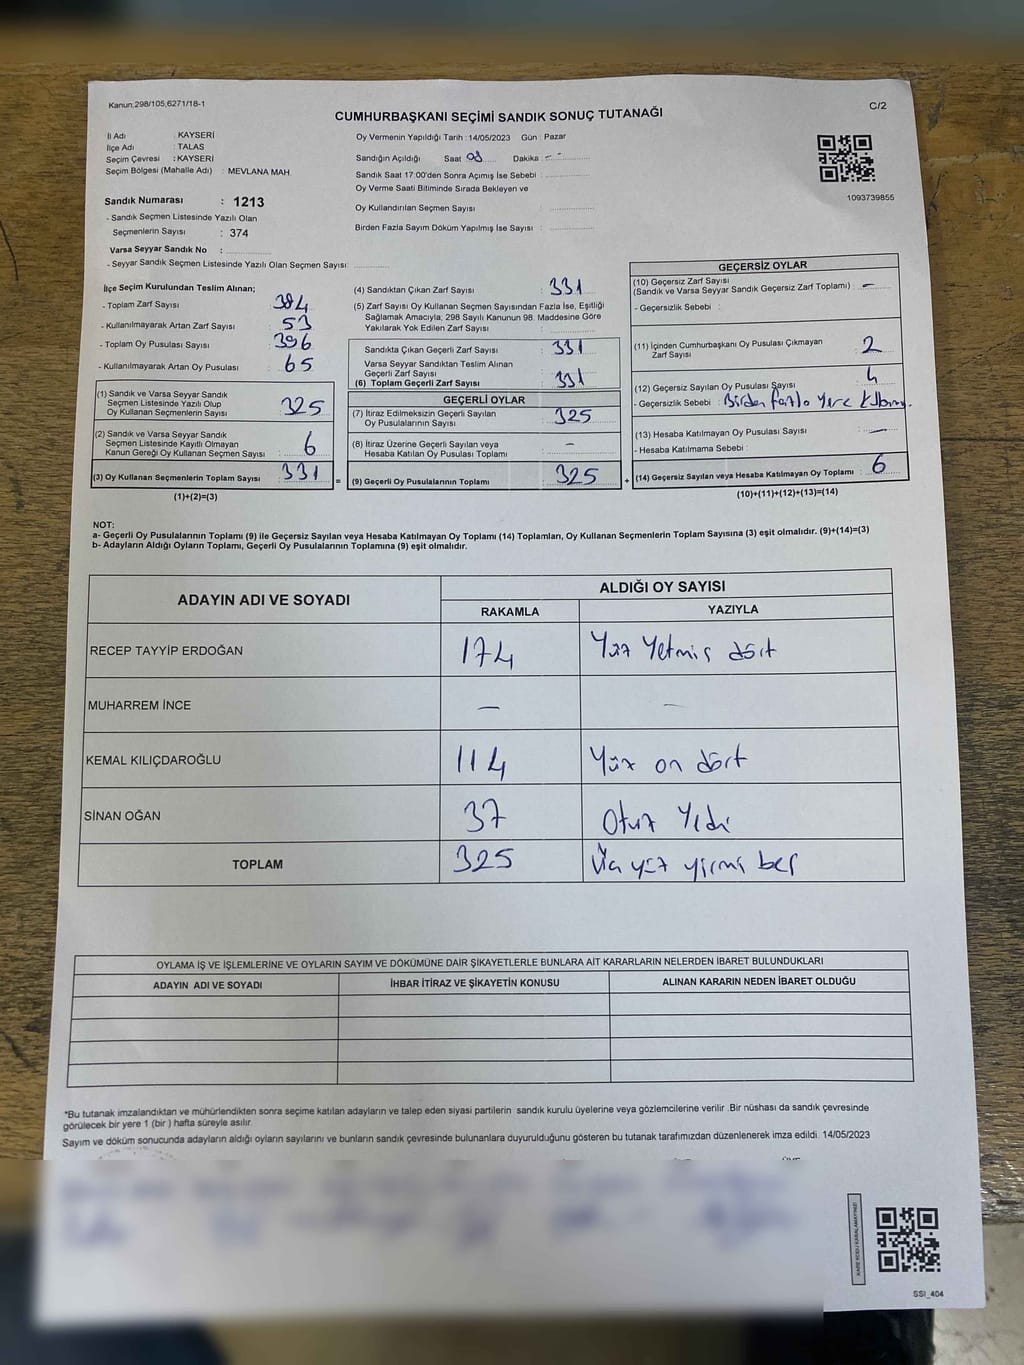 Kanun:298/105,6271/18-1
C/2
CUMHURBAŞKANI SEÇİMİ SANDIK SONUÇ TUTANAĞI
İl Adı : KAYSERİ
İlçe Adı : TALAS
Seçim Çevresi : KAYSERİ
Seçim Bölgesi (Mahalle Adı) : MEVLANA MAH.
Oy Vermenin Yapıldığı Tarih : 14/05/2023 Gün : Pazar
Sandığın Açıldığı Saat 08 Dakika - -
Sandık Saat 17:00'den Sonra Açımış İse Sebebi :
Oy Verme Saati Bitiminde Sırada Bekleyen ve
Oy Kullandırılan Seçmen Sayısı :
Birden Fazla Sayım Döküm Yapılmış İse Sayısı :
1093739855
Sandık Numarası : 1213
- Sandık Seçmen Listesinde Yazılı Olan
Seçmenlerin Sayısı : 374
Varsa Seyyar Sandık No :
- Seyyar Sandık Seçmen Listesinde Yazılı Olan Seçmen Sayısı:
İlçe Seçim Kurulundan Teslim Alınan;
- Toplam Zarf Sayısı 384
- Kullanılmayarak Artan Zarf Sayısı 53
- Toplam Oy Pusulası Sayısı 396
- Kullanılmayarak Artan Oy Pusulası 65
(1) Sandık ve Varsa Seyyar Sandık
Seçmen Listesinde Yazılı Olup
Oy Kullanan Seçmenlerin Sayısı 325
(2) Sandık ve Varsa Seyyar Sandık
Seçmen Listesinde Kayıtlı Olmayan
Kanun Gereği Oy Kullanan Seçmen Sayısı : 6
(3) Oy Kullanan Seçmenlerin Toplam Sayısı : 331
(1)+(2)=(3)
(4) Sandıktan Çıkan Zarf Sayısı : 331
(5) Zarf Sayısı Oy Kullanan Seçmen Sayısından Fazla İse, Eşitliği
Sağlamak Amacıyla; 298 Sayılı Kanunun 98. Maddesine Göre
Yakılarak Yok Edilen Zarf Sayısı :
Sandıkta Çıkan Geçerli Zarf Sayısı : 331
Varsa Seyyar Sandıktan Teslim Alınan
Geçerli Zarf Sayısı :
(6) Toplam Geçerli Zarf Sayısı : 331
GEÇERLİ OYLAR
(7) İtiraz Edilmeksizin Geçerli Sayılan
Oy Pusulalarının Sayısı : 325
(8) İtiraz Üzerine Geçerli Sayılan veya
Hesaba Katılan Oy Pusulası Toplamı : -
= (9) Geçerli Oy Pusulalarının Toplamı : 325 +
GEÇERSİZ OYLAR
(10) Geçersiz Zarf Sayısı
(Sandık ve Varsa Seyyar Sandık Geçersiz Zarf Toplamı) : -
- Geçersizlik Sebebi :
(11) İçinden Cumhurbaşkanı Oy Pusulası Çıkmayan
Zarf Sayısı : 2
(12) Geçersiz Sayılan Oy Pusulası Sayısı : 4
- Geçersizlik Sebebi : Birden fazla yere
(13) Hesaba Katılmayan Oy Pusulası Sayısı : -
- Hesaba Katılmama Sebebi :
(14) Geçersiz Sayılan veya Hesaba Katılmayan Oy Toplamı : 6
(10)+(11)+(12)+(13)=(14)
NOT:
a- Geçerli Oy Pusulalarının Toplamı (9) ile Geçersiz Sayılan veya Hesaba Katılmayan Oy Toplamı (14) Toplamları, Oy Kullanan Seçmenlerin Toplam Sayısına (3) eşit olmalıdır. (9)+(14)=(3)
b- Adayların Aldığı Oyların Toplamı, Geçerli Oy Pusulalarının Toplamına (9) eşit olmalıdır.
ADAYIN ADI VE SOYADI
ALDIĞI OY SAYISI
RAKAMLA YAZIYLA
RECEP TAYYİP ERDOĞAN 174 Yüz Yetmiş dört
MUHARREM İNCE - -
KEMAL KILIÇDAROĞLU 114 Yüz on dört
SİNAN OĞAN 37 Otuz Yedi
TOPLAM 325 Üç yüz yirmi beş
OYLAMA İŞ VE İŞLEMLERİNE VE OYLARIN SAYIM VE DÖKÜMÜNE DAİR ŞİKAYETLERLE BUNLARA AİT KARARLARIN NELERDEN İBARET BULUNDUKLARI
ADAYIN ADI VE SOYADI İHBAR İTİRAZ VE ŞİKAYETİN KONUSU ALINAN KARARIN NEDEN İBARET OLDUĞU
*Bu tutanak imzalandıktan ve mühürlendikten sonra seçime katılan adayların ve talep eden siyasi partilerin sandık kurulu üyelerine veya gözlemcilerine verilir .Bir nüshası da sandık çevresinde
görülecek bir yere 1 (bir ) hafta süreyle asılır.
Sayım ve döküm sonucunda adayların aldığı oyların sayılarını ve bunların sandık çevresinde bulunanlara duyurulduğunu gösteren bu tutanak tarafımızdan düzenlenerek imza edildi. 14/05/2023
KARE KODU KARALAMAYINIZ!
SSI_404